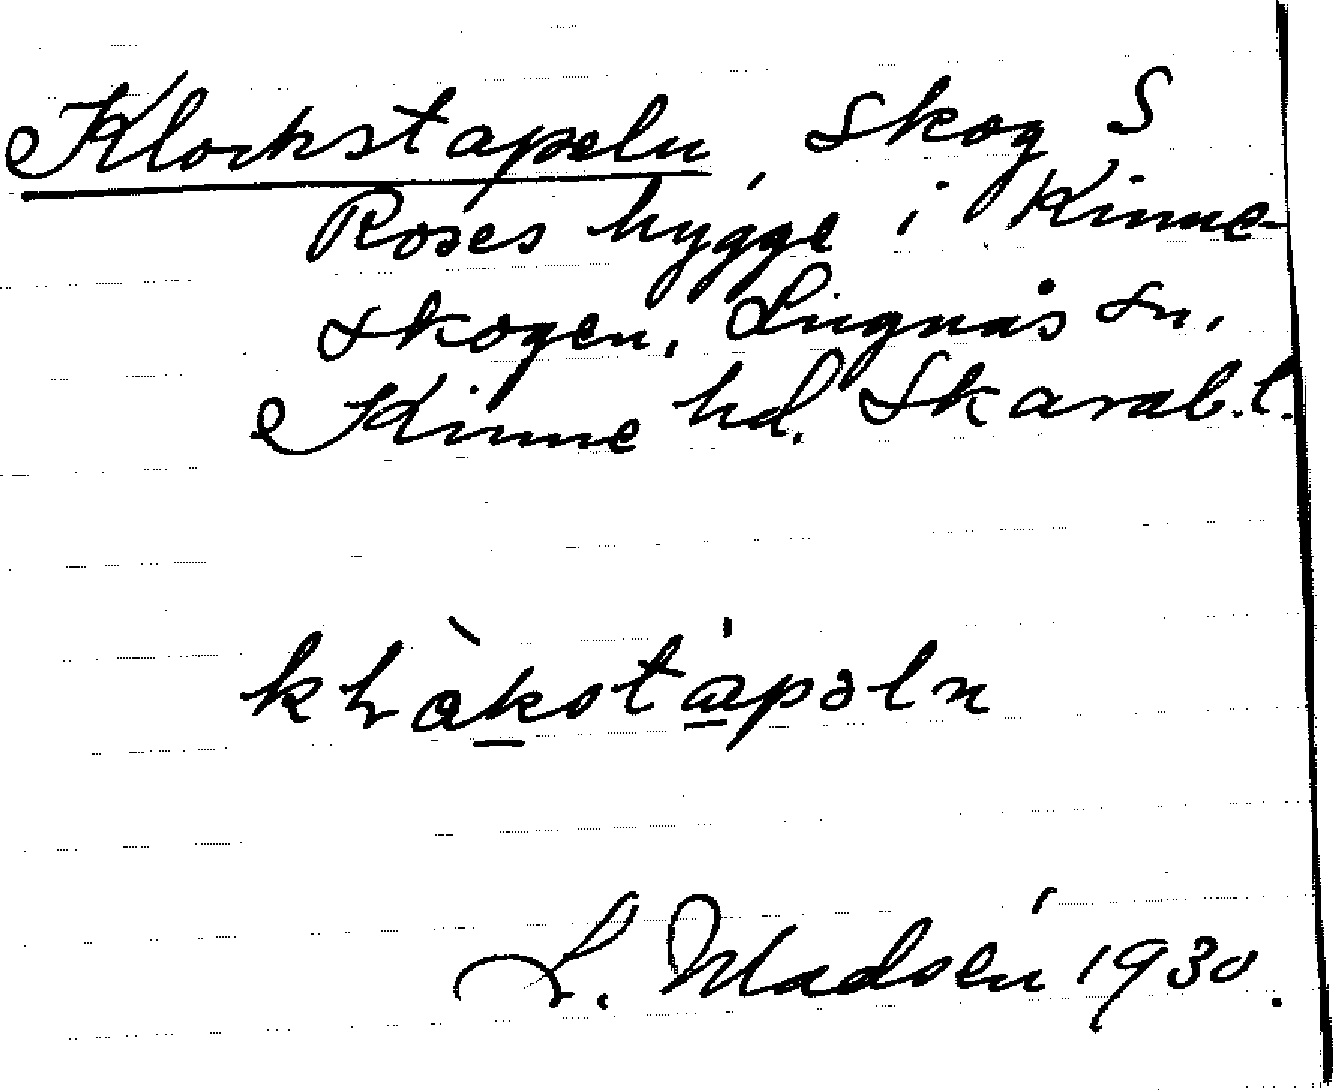 Klockstapeln, Skog S
Roses hygge i Kinne-
skogen, Lugnås sn,
Kinne hd. Skarab. l.
kḷàkstápəln
L. Madsén 1930.